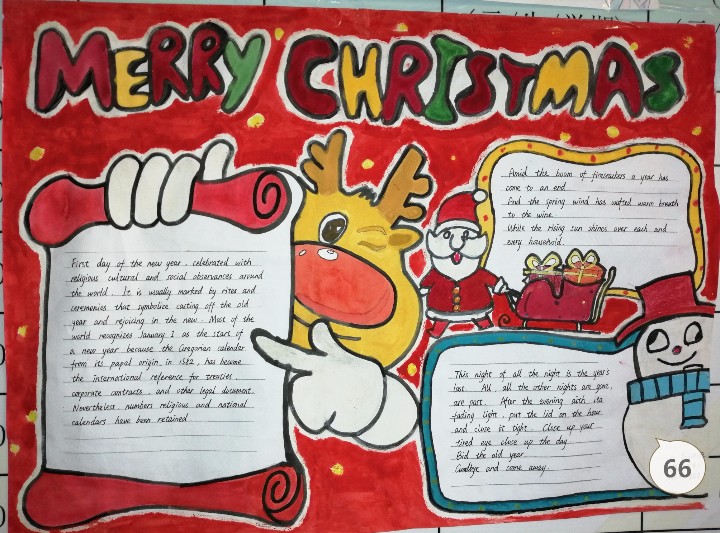 MERRY CHRISTMAS
First day of the new year, celebrated with
religious cultural and social observances around
the world. It is usually marked by rites and
ceremonies that symbolize casting off the old
year and rejoicing in the new. Most of the
world recognizes January 1 as the start of
a new year because the Gregorian calendar
from its papal origin in 1582, has become
the international reference for treaties,
corporate contracts, and other legal document.
Nevertheless, numbers religious and national
calendars have been retained
Amid the boom of firecrackers a year has
come to an end
And the spring wind has wafted warm breath
to the wine
While the rising sun shines over each and
every household.
This night of all the night is the years
last. All all the other nights are gone,
are past. After the evening with its
fading light, put the lid on the box
and close it tight. Close up your
tired eye close up the day
Bid the old year
Goodbye and come away.
66